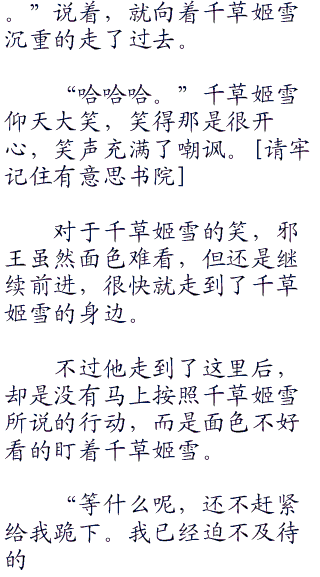 。”说着，就向着千草姬雪
沉重的走了过去。
“哈哈哈。”千草姬雪
仰天大笑，笑得那是很开
心，笑声充满了嘲讽。[请牢
记住有意思书院]
对于千草姬雪的笑，邪
王虽然面色难看，但还是继
续前进，很快就走到了千草
姬雪的身边。
不过他走到了这里后，
却是没有马上按照千草姬雪
所说的行动，而是面色不好
看的盯着千草姬雪。
“等什么呢，还不赶紧
给我跪下。我已经迫不及待
的